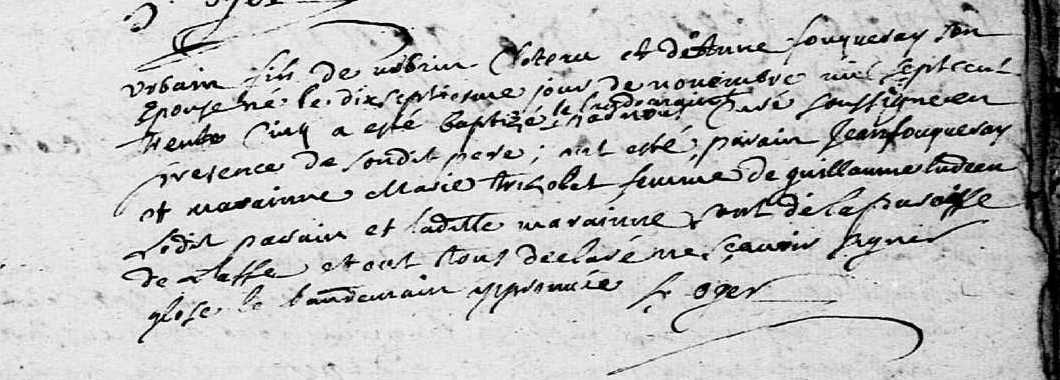 urbain fils de urbain et de Anne fouqueray son
Epouse né le dixseptiesme jour de novembre mil septcent
trente Cinq a esté baptizé par nous Curé soussigné en
presence de sondit pere ; ont esté parain Jean fouqueray
et marainne Marie femme de guillaume
Ledit parain et ladille marainne sont de la paroisse
de et ont tous declaré ne sçavoir signer
glose le approuvée L oger